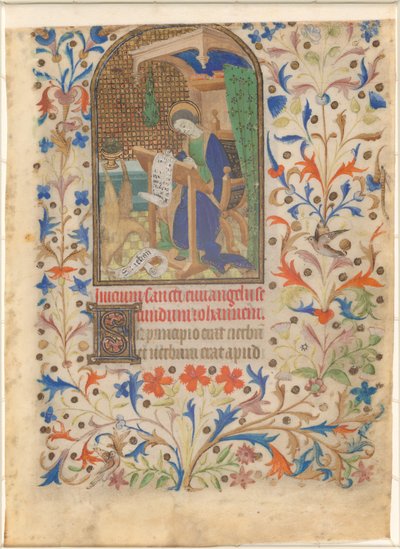 S. iehan
Inicium sancti euuangelii se
cundum iohannem.
In principio erat verbu
et verbum erat apud